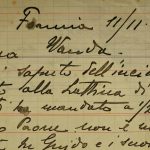 Formia 11/11.
Wanda.
saputo dell'inci
alla Lattrina di
ha mandato a
Paone non è
Guido e i suoi